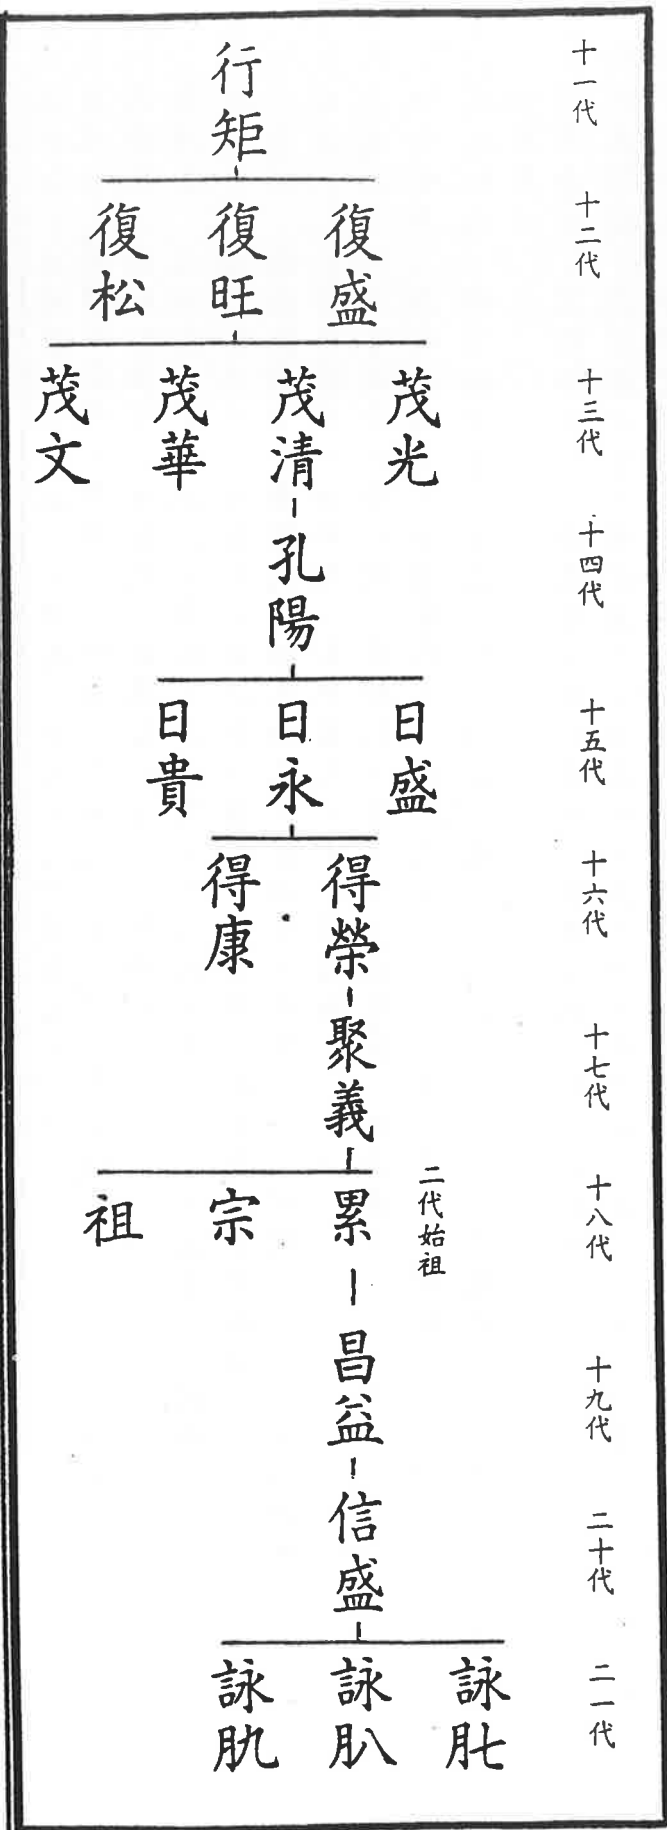 十一代
行矩
十二代
復盛
復旺
復松
十三代
茂光
茂清
茂華
茂文
十四代
孔陽
十五代
日盛
日永
日貴
十六代
得榮
得康
十七代
聚義
十八代
二代始祖
累
宗
祖
十九代
昌益
二十代
信盛
二一代
詠
詠
詠肍